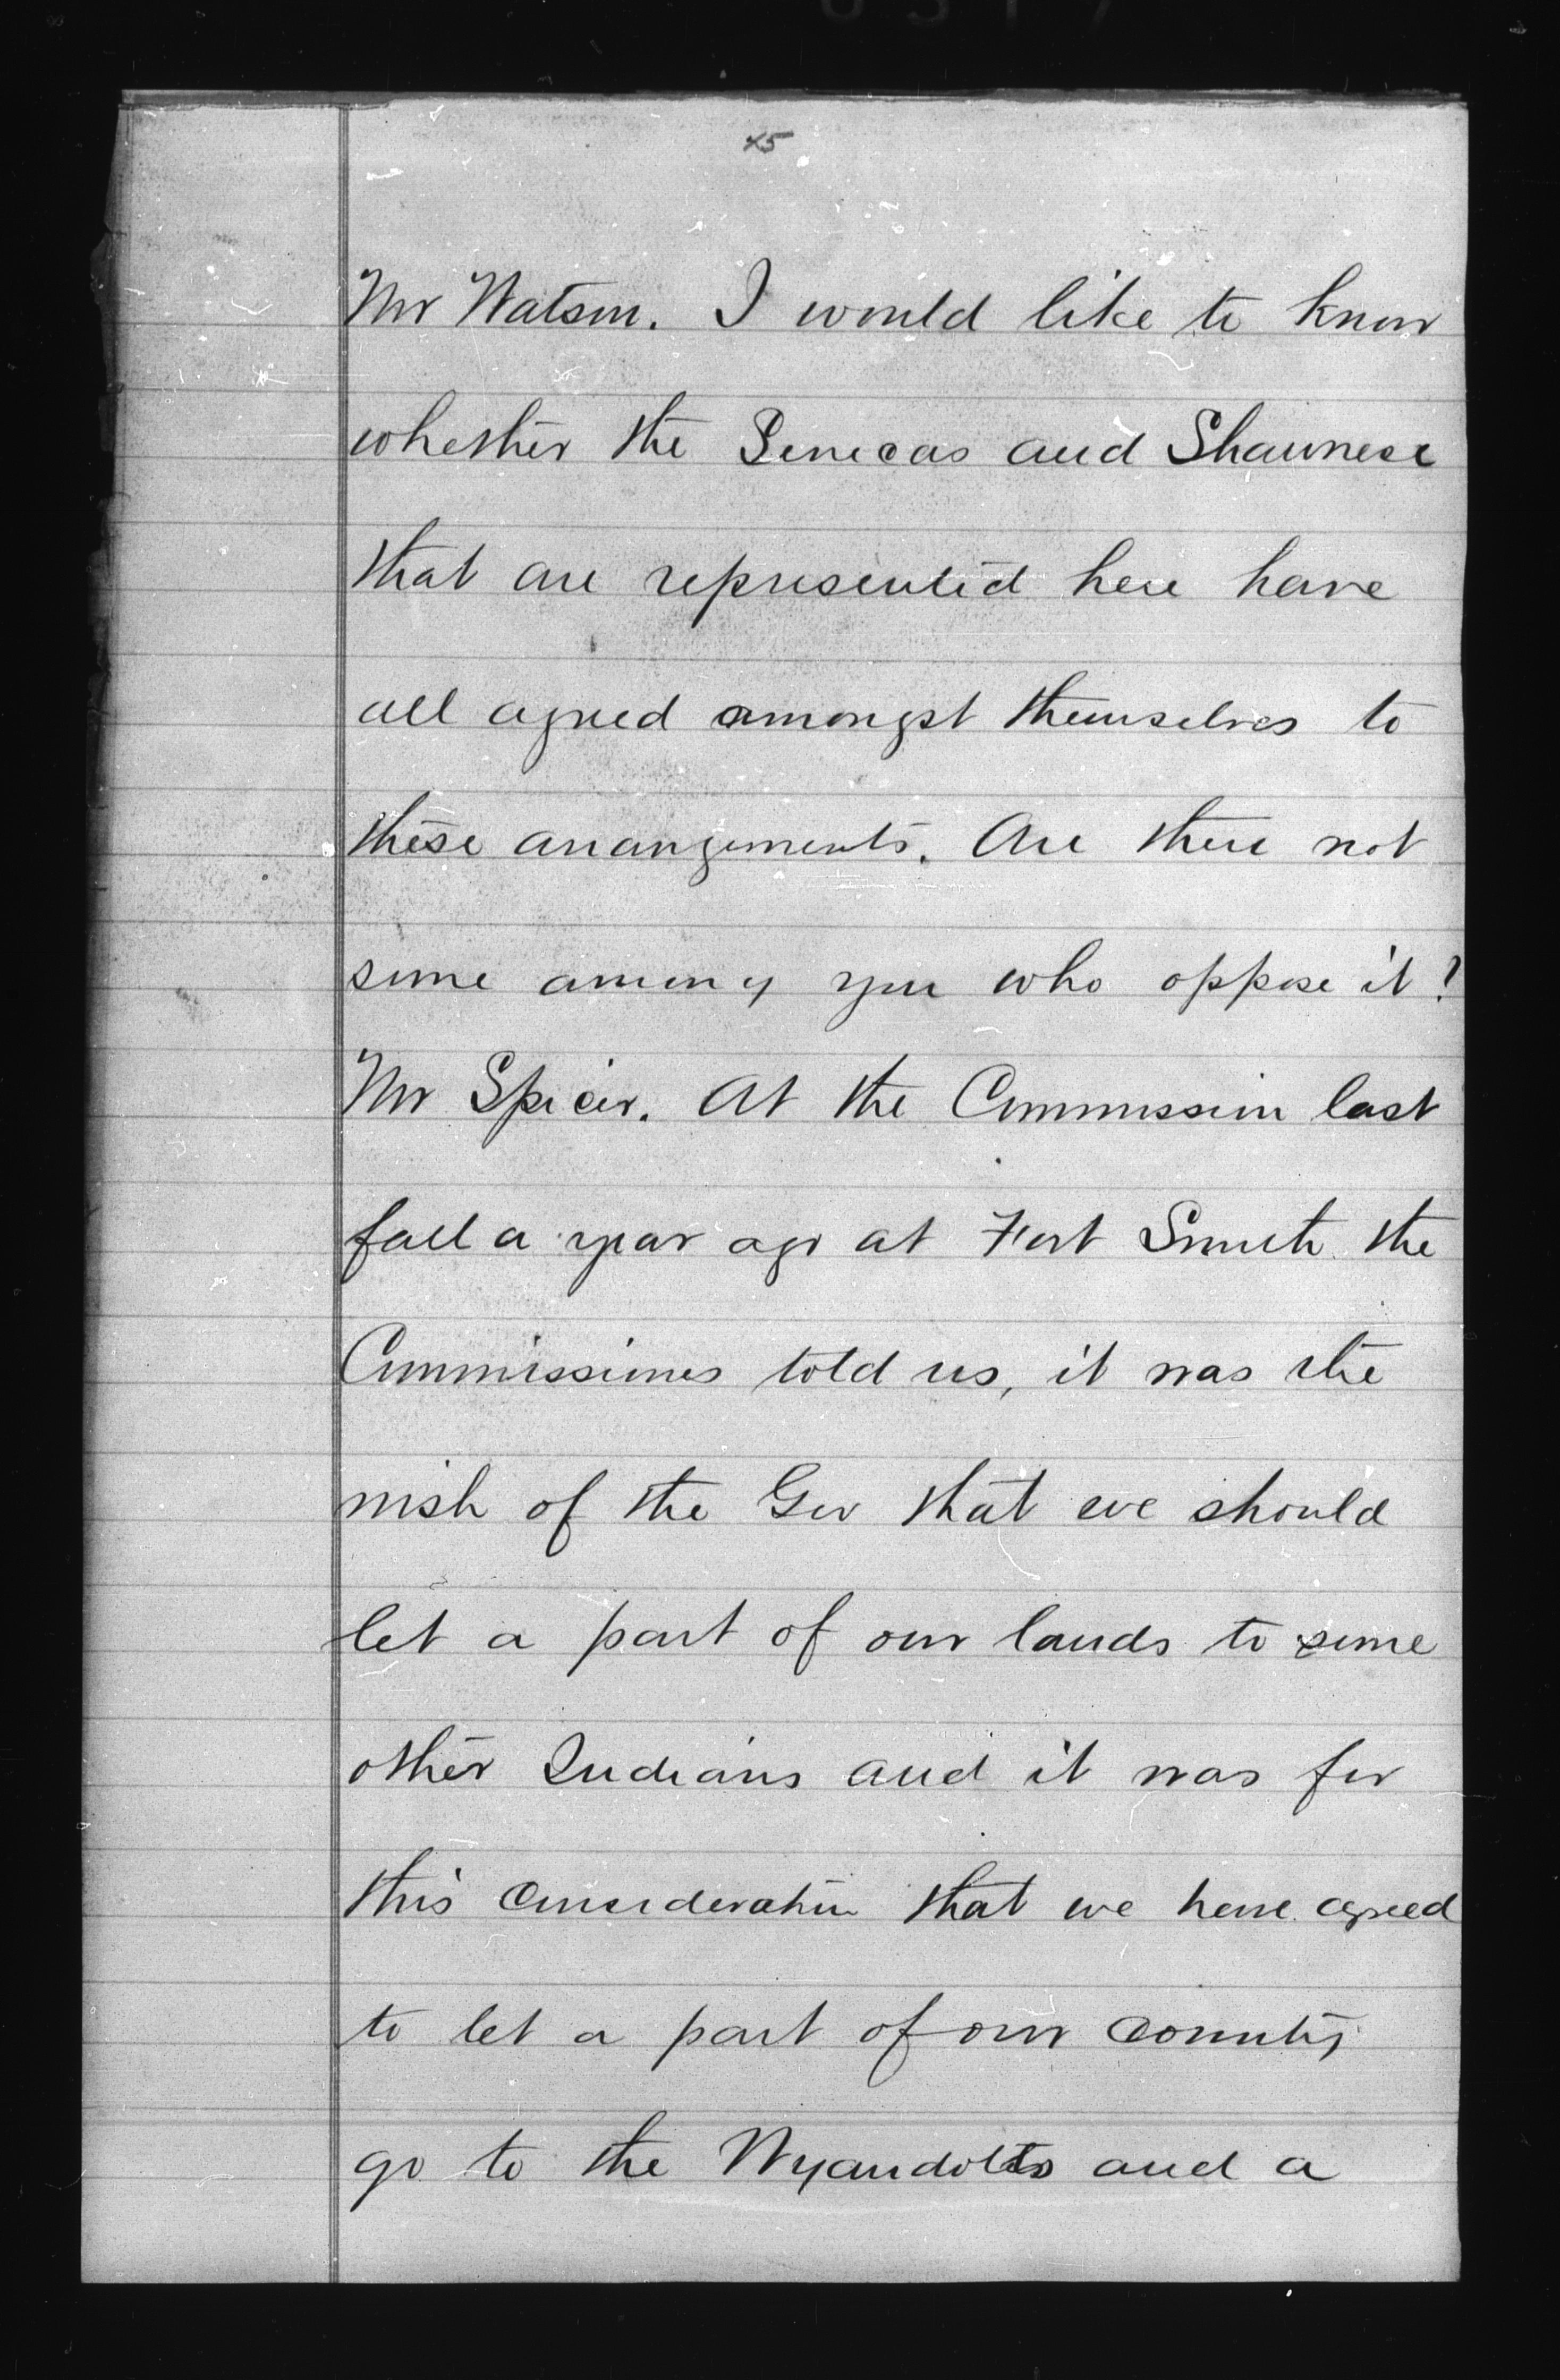 45
Mr Watson. I would like to know
whether the Senecas and Shawnese
that are represented here have
all agreed amongst themselves to
these arrangements. Are there not
some among you who oppose it?
Mr Spicer. At the Commission last
fall a year ago at Fort Smith the
Commissioners told us, it was the
wish of the Gov that we should
let a part of our lands to some
other Indians and it was for
this consideration that we have agreed
to let a part of our country
go to the Wyandotts and a